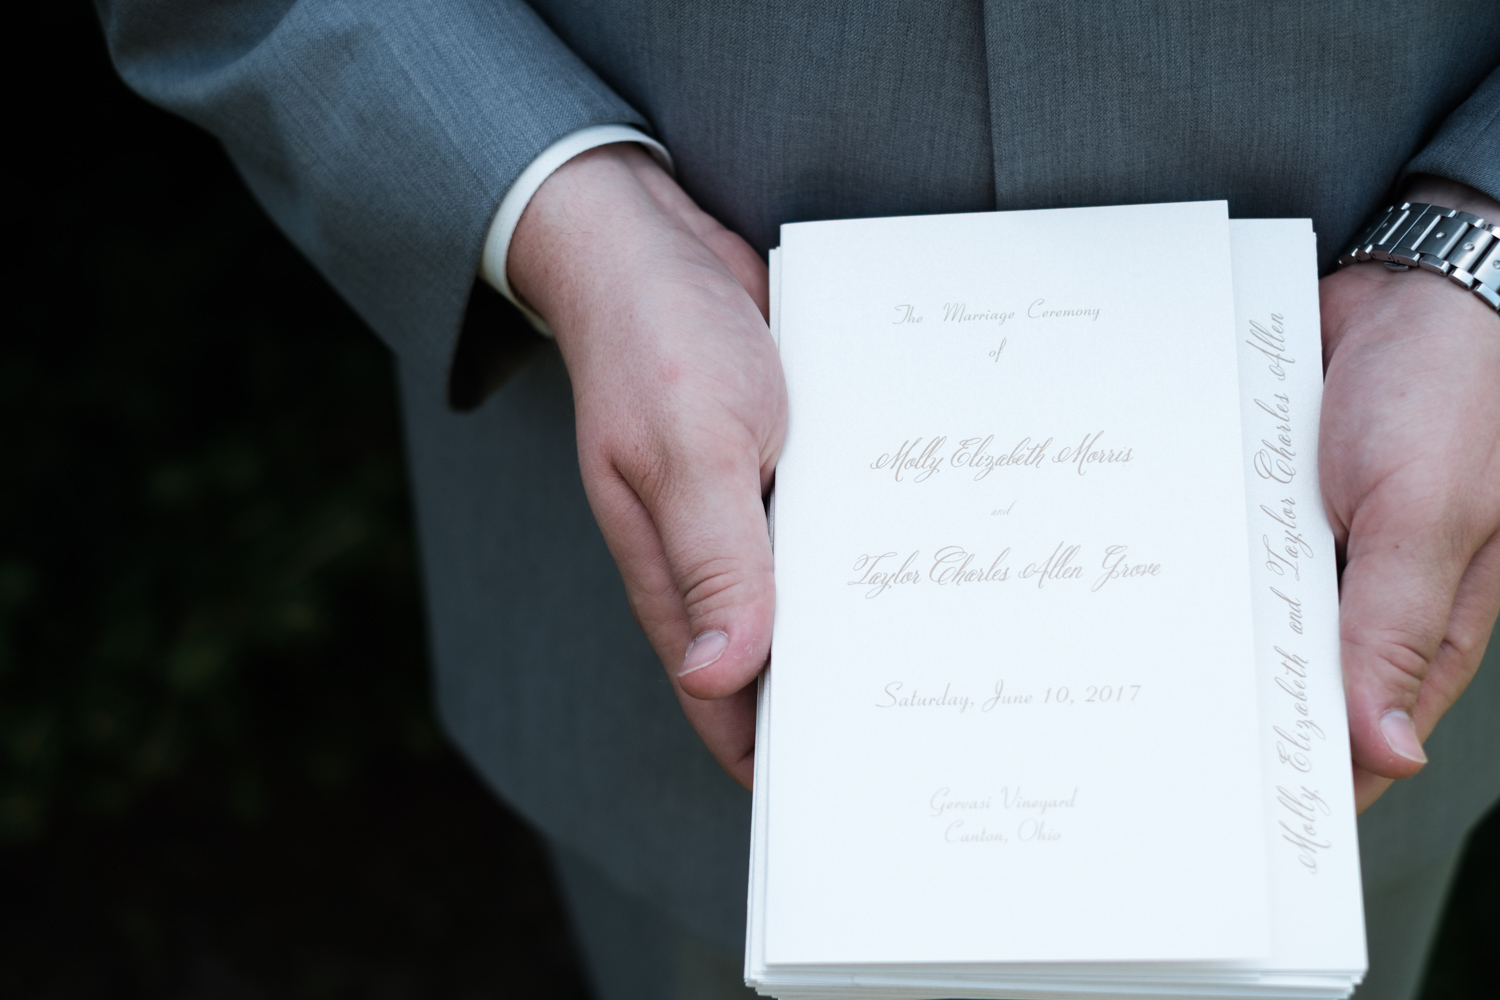 The Marriage Ceremony
of
Molly Elizabeth Morris
and
Taylor Charles Allen Grove
Saturday, June 10, 2017
Gervasi Vineyard
Canton, Ohio
Molly Elizabeth and Taylor Charles Allen